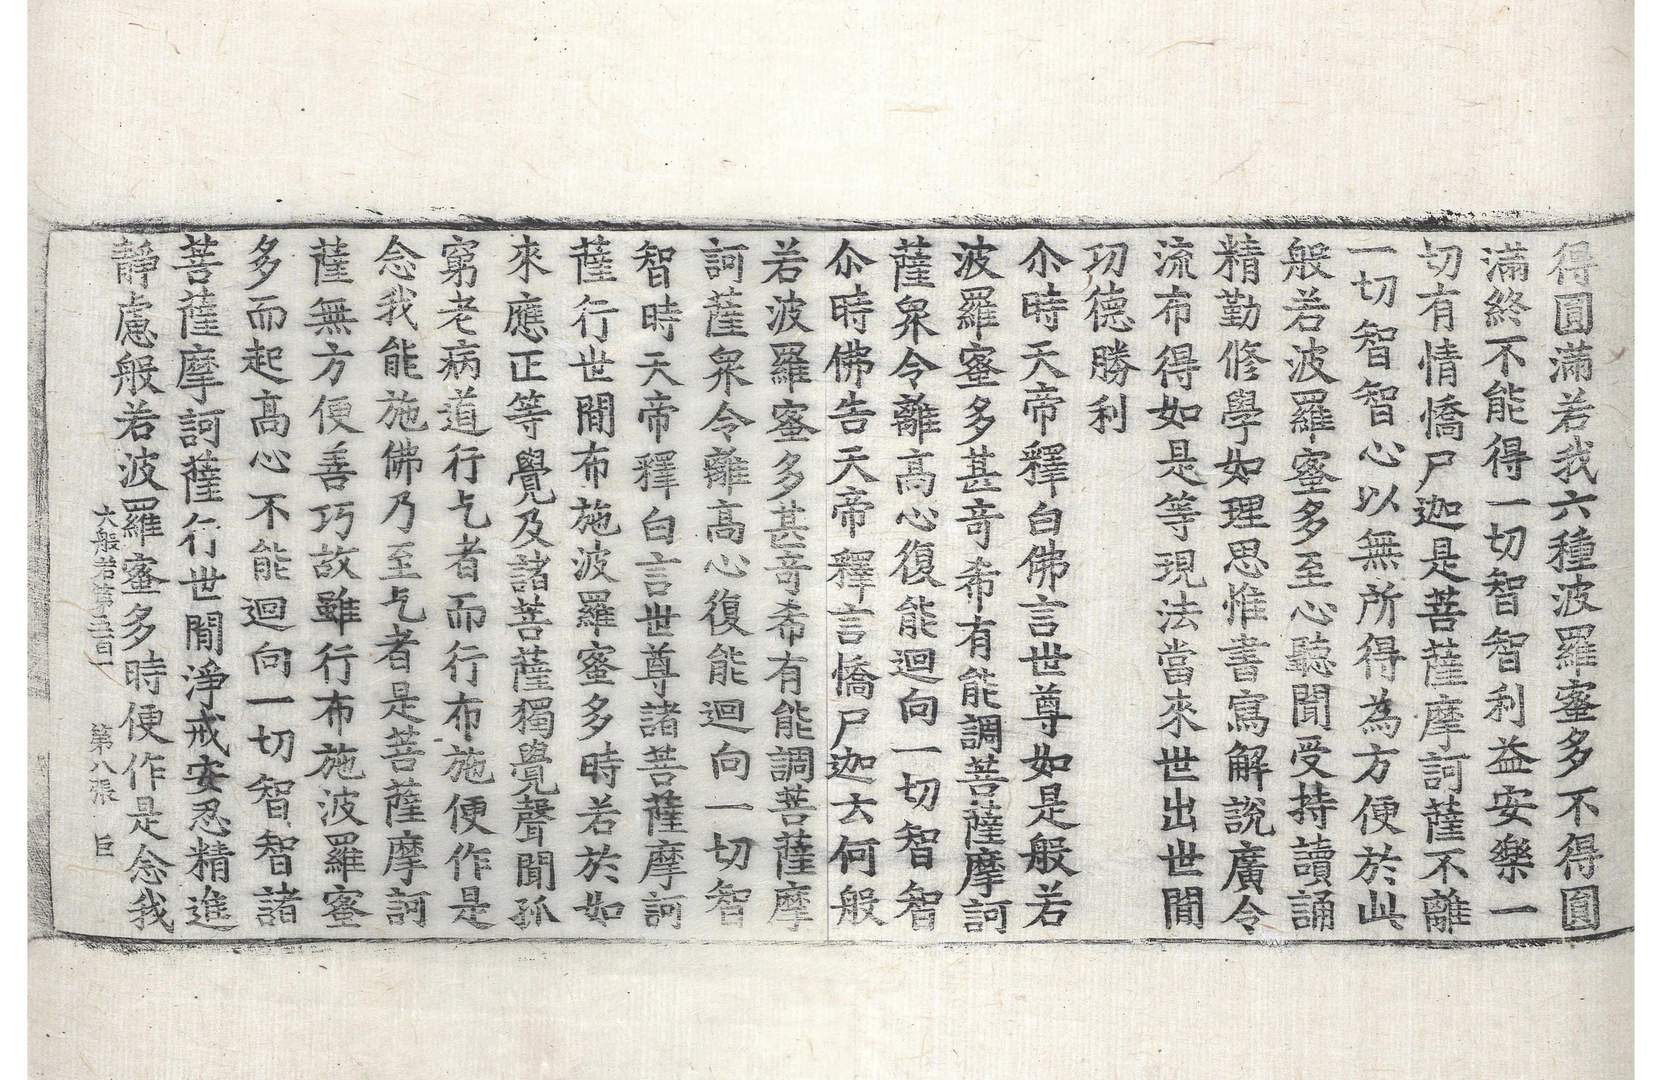 得圓滿若我六種波羅蜜多不得圓
滿終不能得一切智智利益安樂一
切有情憍尸迦是菩薩摩訶薩不離
一切智智心以無所得為方便於此
般若波羅蜜多至心聽聞受持讀誦
精勤修學如理思惟書寫解說廣令
流布得如是等現法當來世出世間
功德勝利
尒時天帝釋白佛言世尊如是般若
波羅蜜多甚奇希有能調菩薩摩訶
薩衆令離高心復能迴向一切智智
尒時佛告天帝釋言憍尸迦云何般
若波羅蜜多甚奇希有能調菩薩摩
訶薩衆令離高心復能迴向一切智
智時天帝釋白言世尊諸菩薩摩訶
薩行世間布施波羅蜜多時若於如
來應正等覺及諸菩薩獨覺聲聞孤
窮老病道行乞者而行布施便作是
念我能施佛乃至乞者是菩薩摩訶
薩無方便善巧故雖行布施波羅蜜
多而起高心不能迴向一切智智諸
菩薩摩訶薩行世間淨戒安忍精進
靜慮般若波羅蜜多時便作是念我
大般若第三百一 第八張 巨